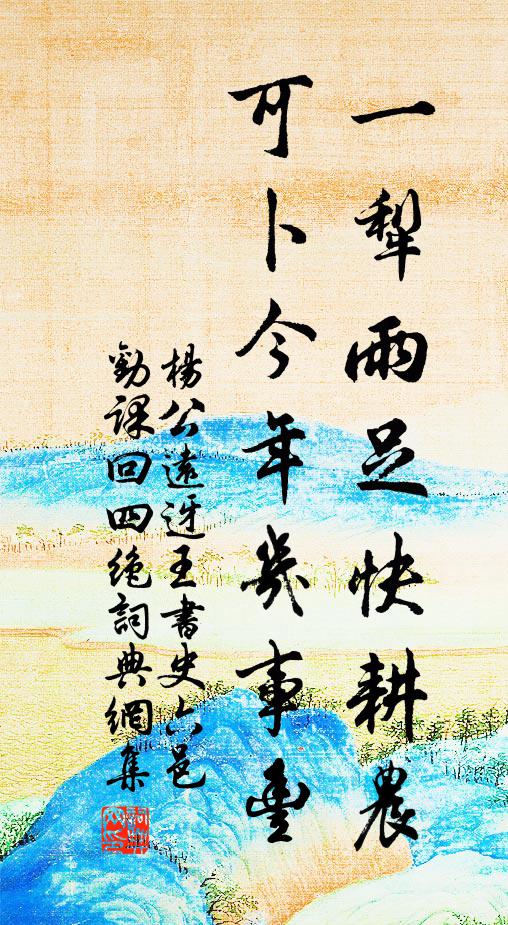 一犁雨足快耕農
可卜今年幾事豐
楊公遠迓王書史六邑
勸課回四絕詞典網集